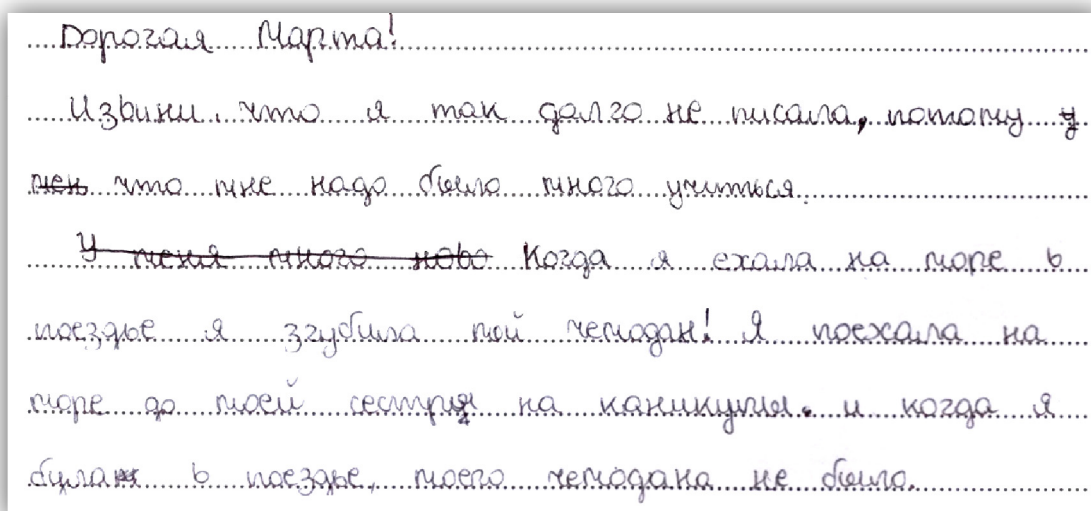 Дорогая Марта!
Извини, что я так долго не писала, потому у
мен что мне надо было много учиться.
У меня много ново Когда я ехала на море в
поездье я згубила мой чемодан! Я поехала на
море до моей сестри на каникулы. и когда я
была в поездье, моего чемодана не было.